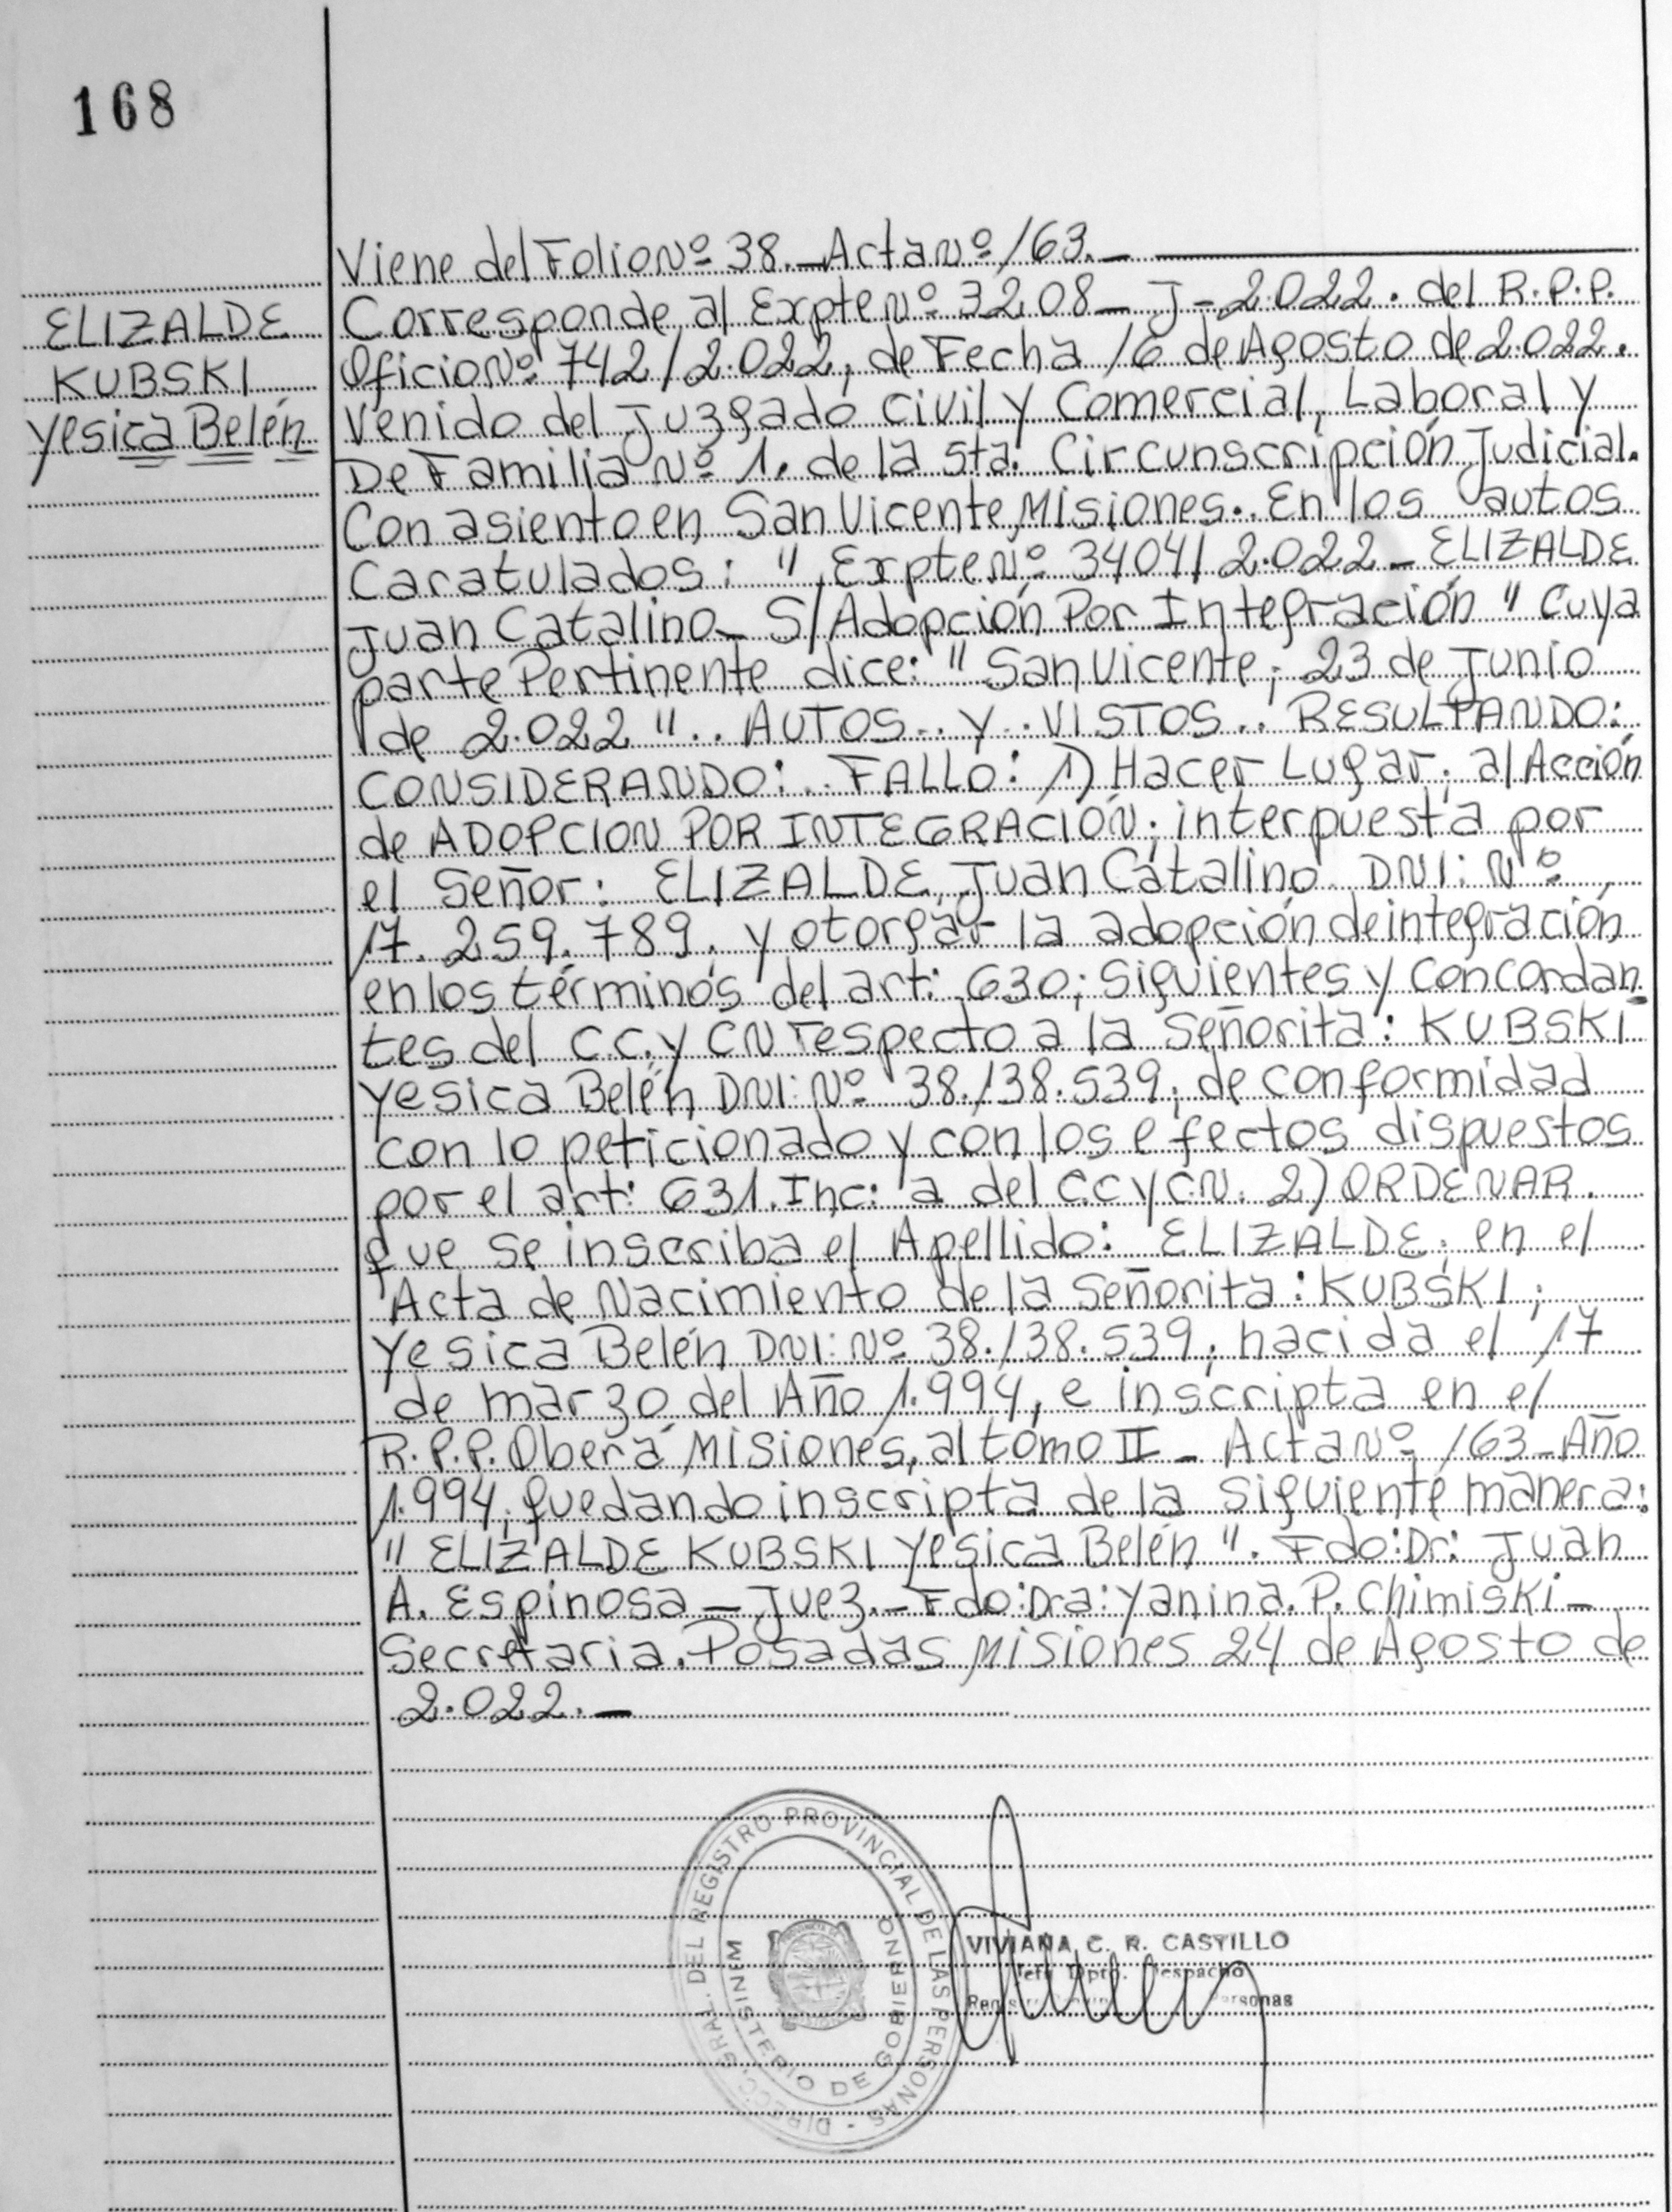 168
ELIZALDE
KUBSKI
Yesica Belén
Viene del Folio Nº 38.- Acta Nº 163.-
Corresponde al Expte Nº 3208-J-2.022. del R.P.P.
Oficio Nº 742/2.022, de Fecha 16 de Agosto de 2.022.
Venido del Juzgado Civil y Comercial, Laboral y
De Familia Nº 1. de la 5ta. Circunscripción Judicial.
Con asiento en San Vicente, Misiones. En los autos
Caratulados: " Expte Nº 3404/2.022 - ELIZALDE
Juan Catalino - S/Adopción Por Integración " Cuya
parte Pertinente dice: " San Vicente; 23 de Junio
de 2.022 ".. AUTOS.. Y.. VISTOS.. RESULTANDO:
CONSIDERANDO:.. FALLO: 1) Hacer Lugar; al Acción
de ADOPCION POR INTEGRACIÓN; interpuesta por
el Señor: ELIZALDE, Juan Catalino DNI: Nº
17.259.789. y otorgar la adopción de integración
en los términos del art: 630; Siguientes y Concordan-
tes del C.C. y CN respecto a la Señorita: KUBSKI
Yesica Belén DNI: Nº 38.138.539; de conformidad
con lo peticionado y con los efectos dispuestos
por el art: 631. Inc: a del C.C y C.N. 2) ORDENAR.
que se inscriba el Apellido: ELIZALDE; en el
Acta de Nacimiento de la Señorita: KUBSKI;
Yesica Belén DNI: Nº 38.138.539; nacida el 17
de marzo del Año 1.994, e inscripta en el
R.P.P. Oberá Misiones, al tomo II - Acta Nº 163 - Año
1.994; quedando inscripta de la siguiente manera:
" ELIZALDE KUBSKI Yesica Belén ". Fdo: Dr: Juan
A. Espinosa - Juez.- Fdo: Dra: Yanina. P. Chimiski -
Secretaria. Posadas Misiones 24 de Agosto de
2.022.-
DIREC. GRAL. DEL REGISTRO PROVINCIAL DE LAS PERSONAS -
MINISTERIO DE GOBIERNO
VIVIANA C. R. CASTILLO
Dpto. Despacho
Personas